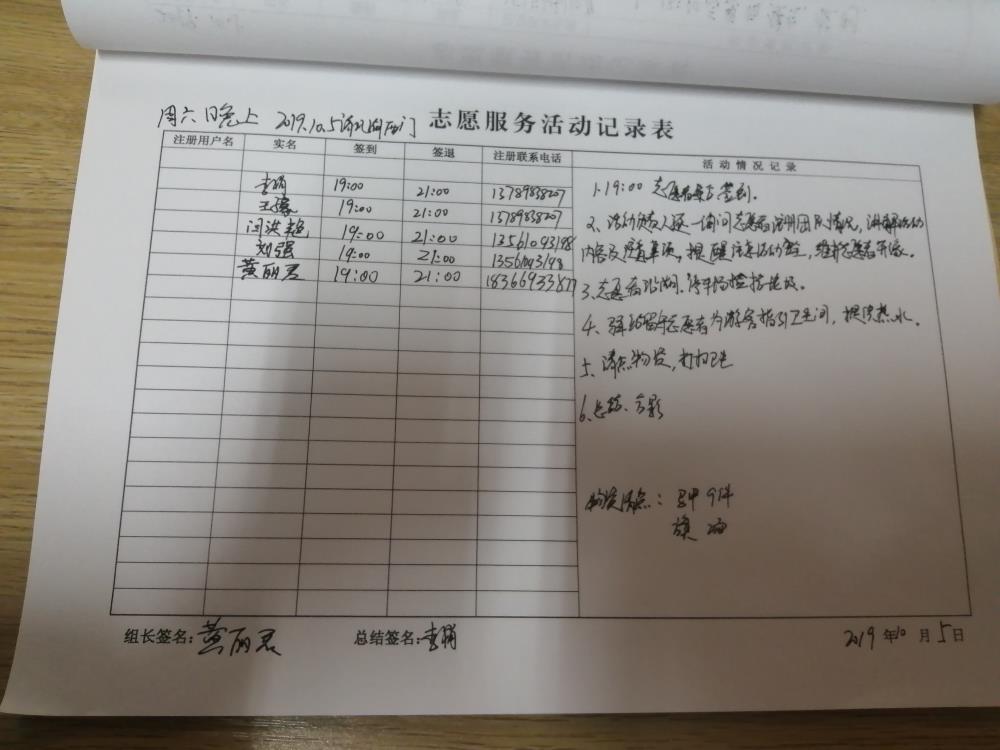 周六晚上 2019.10.5 志愿服务活动记录表
注册用户名 实名 签到 签退 注册联系电话 活动情况记录
李楠 19:00 21:00 13789838207
王 19:00 21:00 13789838207
闫洪艳 19:00 21:00 13561093198
刘强 19:00 21:00 13561093198
黄丽君 19:00 21:00 18366933877
1.19:00 志愿者签到。
2、活动负责人逐一询问志愿者注册团队情况，讲解活动
内容及注意事项，提醒注意活动安全，维护志愿者形象。
3.志愿者沿湖、停车场捡拾垃圾。
4、驿站留守志愿者为游客指引卫生间，提供热水。
5、清点物资，打扫卫生
6.总结、合影
物资清点：马甲 9件
旗
组长签名：黄丽君 总结签名：李楠 2019 年 10 月 5 日